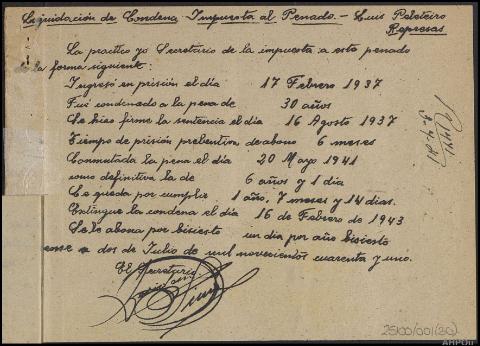 Liquidación de Condena Impuesta al Penado.- Luis Peleteiro
Represas
La practico yo Secretario de la impuesta a este penado
de la forma siguiente:
Ingresó en prisión el día 17 Febrero 1937
Fué condenado a la pena de 30 años
Se hizo firme la sentencia el día 16 Agosto 1937
Tiempo de prisión prebentiva de abono 6 meses
Conmutada la pena el día 20 Mayo 1941
como definitiva la de 6 años y 1 día
Le queda por cumplir 1 año, 7 meses y 14 días.
Extingue la condena el día 16 de Febrero de 1943
Se le abona por bisiesto un día por año bisiesto
a dos de Julio de mil novecientos cuarenta y uno.
El Secretario
25100/001(20)
AHPOU